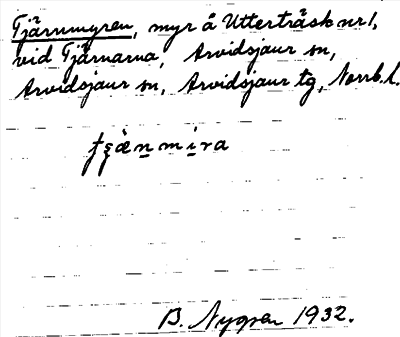 Tjärnmyren, myr å Utterträsk nr 1,
vid Tjärnarna, Arvidsjaur sn,
Arvidsjaur sn, Arvidsjaur tg, Norrb. l.
B. Nygren 1932.